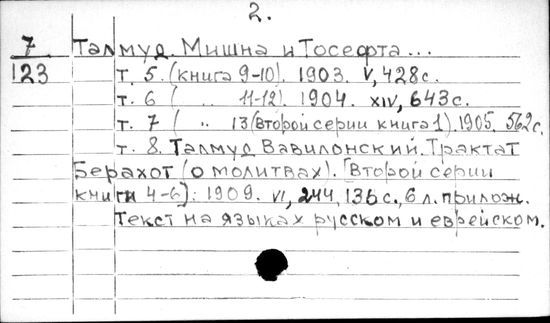 2.
7 Талмуд. Мишна и Тосефта...
123 т. 5. (книга 9-10). 1903. V, 428 с.
т. 6 ( „ 11-12). 1904. XIV, 643 с.
т. 7 ( „ 13 (второй серии книга 1). 1905. 562 с.
т. 8. Талмуд Вавилонский. Трактат
Берахот (о молитвах). [Второй серии
книги 4-6]: 1909. VI, 244, 136 с., 6 л. прилож.
Текст на языках русском и еврейском.